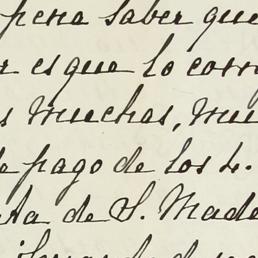 pena saber que
es que lo corr
s muchas, mu
de pago de los 4.
ta de S. Made